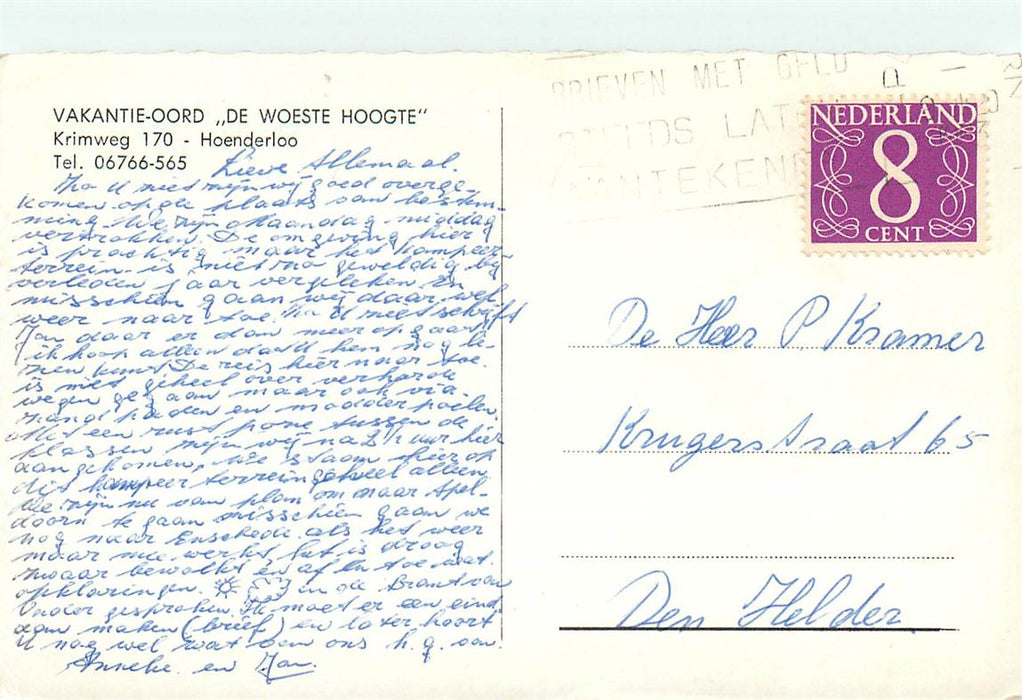 VAKANTIE-OORD „DE WOESTE HOOGTE"
Krimweg 170 - Hoenderloo
Tel. 06766-565
Lieve Allemaal.
Zo U ziet zijn wij goed overge-
komen op de plaats van bestem-
ming. We zijn Maandag middag
vertrokken. De omgeving hier
is prachtig maar het kampeer
terrein is niet zo geweldig bij
verleden jaar vergeleken. En
misschien gaan wij daar wel
weer naar toe. Zo U ziet schrijft
Jan daar er dan meer op gaat
ik hoop alleen dat U hem nog le-
zen kunt. De reis hier naar toe.
is niet geheel over verharde
wegen gegaan maar ook via.
zand paden en modder poelen.
Met een rust poze tussen de
plassen zijn wij na 2½ uur hier
aangekomen, we staan hier op
dit kampeer terrein geheel alleen.
We zijn nu van plan om naar Apel-
doorn te gaan misschien gaan we
nog naar Enschede. als het weer
maar mee werkt, het is droog
zwaar bewolkt en af en toe wat
opklaringen. in de Brant van
Vader gesproken. Ik moet er een eind
aan maken (brief) en later hoort
U nog wel wat van ons h.g. van.
Anneke en Jan.
BRIEVEN MET GELD
STEEDS LAT
AANTEKENE
NEDERLAND
8
CENT
De Heer P. Kramer
Krugerstraat 65
Den Helder